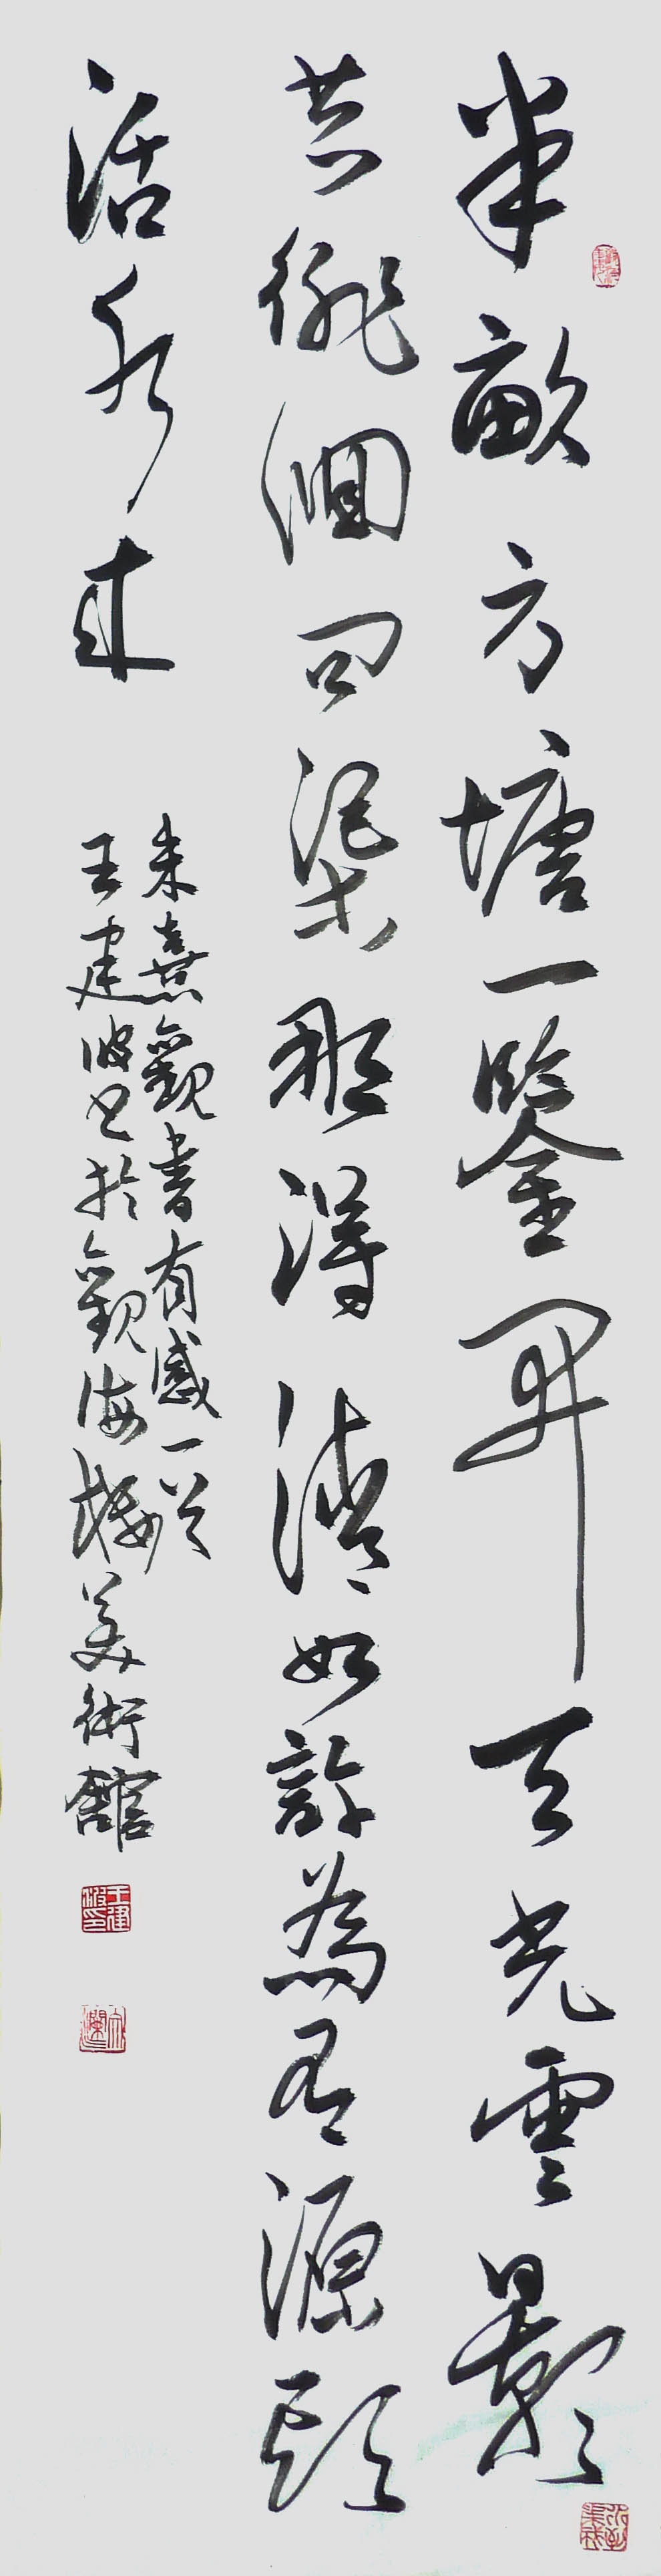 半畝方塘一鑒開天光雲影
共徘徊問渠那得清如許為有源頭
活水來
朱熹觀書有感一首
王建波書於觀海樓美術館
王建波印